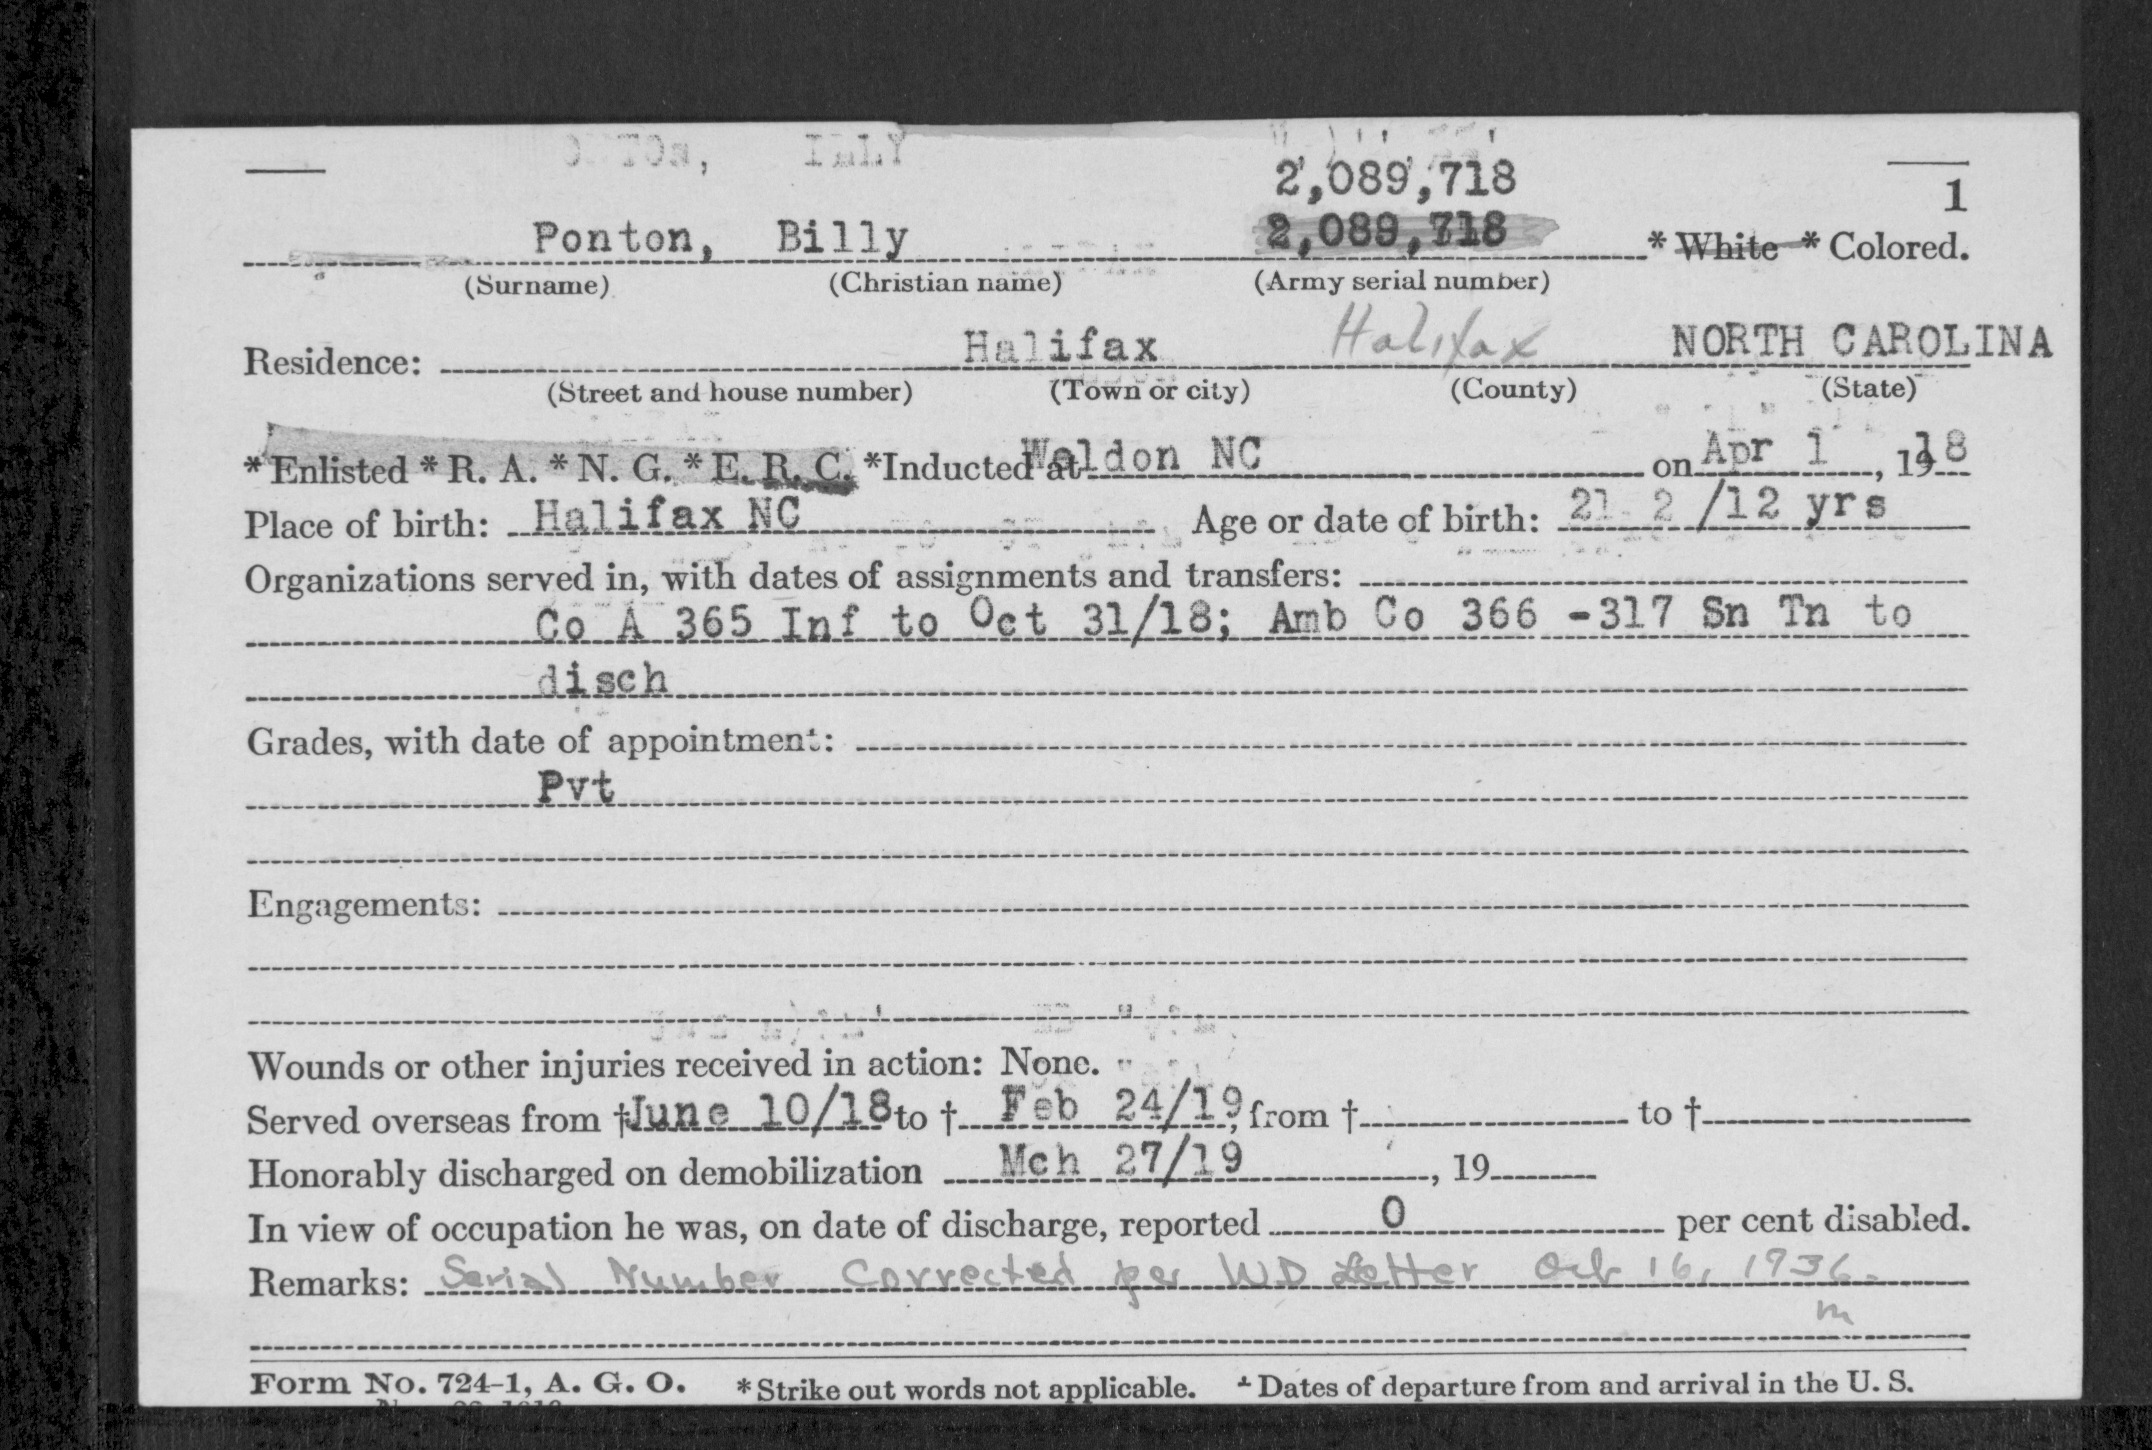 2,089,718
1
Ponton, Billy 2,089,718 * White * Colored.
(Surname) (Christian name) (Army serial number)
Residence: Halifax Halifax NORTH CAROLINA
(Street and house number) (Town or city) (County) (State)
*Enlisted *R. A. *N. G. *E. R. C. *Inducted at Weldon NC on Apr 1, 1918
Place of birth: Halifax NC Age or date of birth: 21 2/12 yrs
Organizations served in, with dates of assignments and transfers:
Co A 365 Inf to Oct 31/18; Amb Co 366 -317 Sn Tn to
disch
Grades, with date of appointment:
Pvt
Engagements:
Wounds or other injuries received in action: None.
Served overseas from †June 10/18 to † Feb 24/19, from † to †
Honorably discharged on demobilization Mch 27/19, 19
In view of occupation he was, on date of discharge, reported 0 per cent disabled.
Remarks: Serial Number Corrected per WD Letter Oct 16, 1936.
m
Form No. 724-1, A. G. O. *Strike out words not applicable. † Dates of departure from and arrival in the U. S.